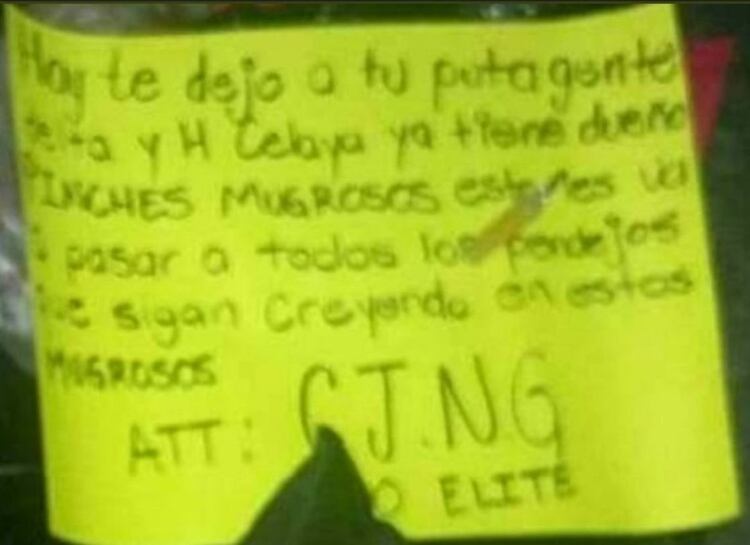 Hay te dejo a tu puta gente
y H Celaya ya tiene dueño
PINCHES MUGROSOS esto les va
a pasar a todos los pendejos
que sigan creyendo en estos
MUGROSOS
ATT: C.J.N.G
O ELITE